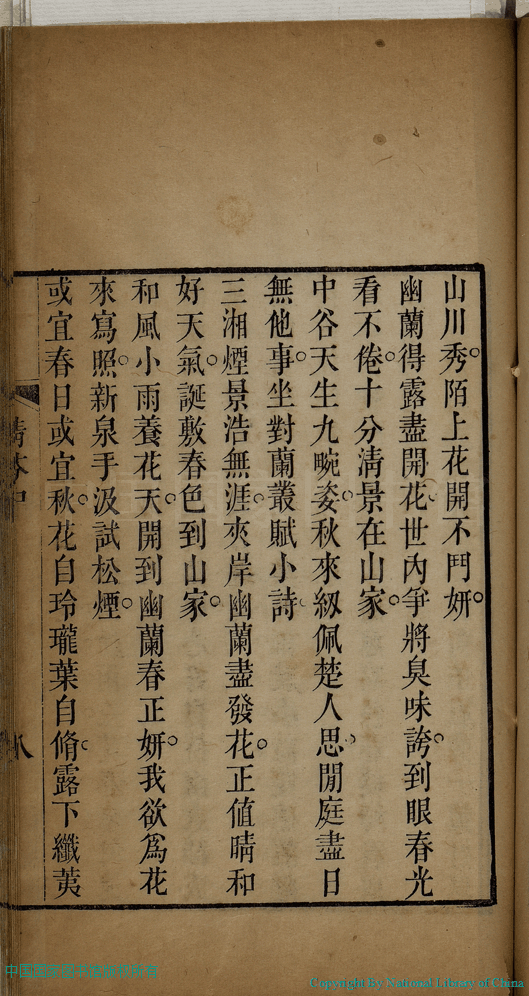 山川秀陌上花開不鬥妍
幽蘭得露盡開花世內爭將臭味誇到眼春光
看不倦十分清景在山家
中谷天生九畹姿秋來紉佩楚人思閒庭盡日
無他事坐對蘭叢賦小詩
三湘煙景浩無涯夾岸幽蘭盡發花正值晴和
好天氣誕敷春色到山家
和風小雨養花天開到幽蘭春正妍我欲爲花
來寫照新泉手汲試松煙
或宜春日或宜秋花自玲瓏葉自脩露下纖荑
八
Copyright By National Library of China